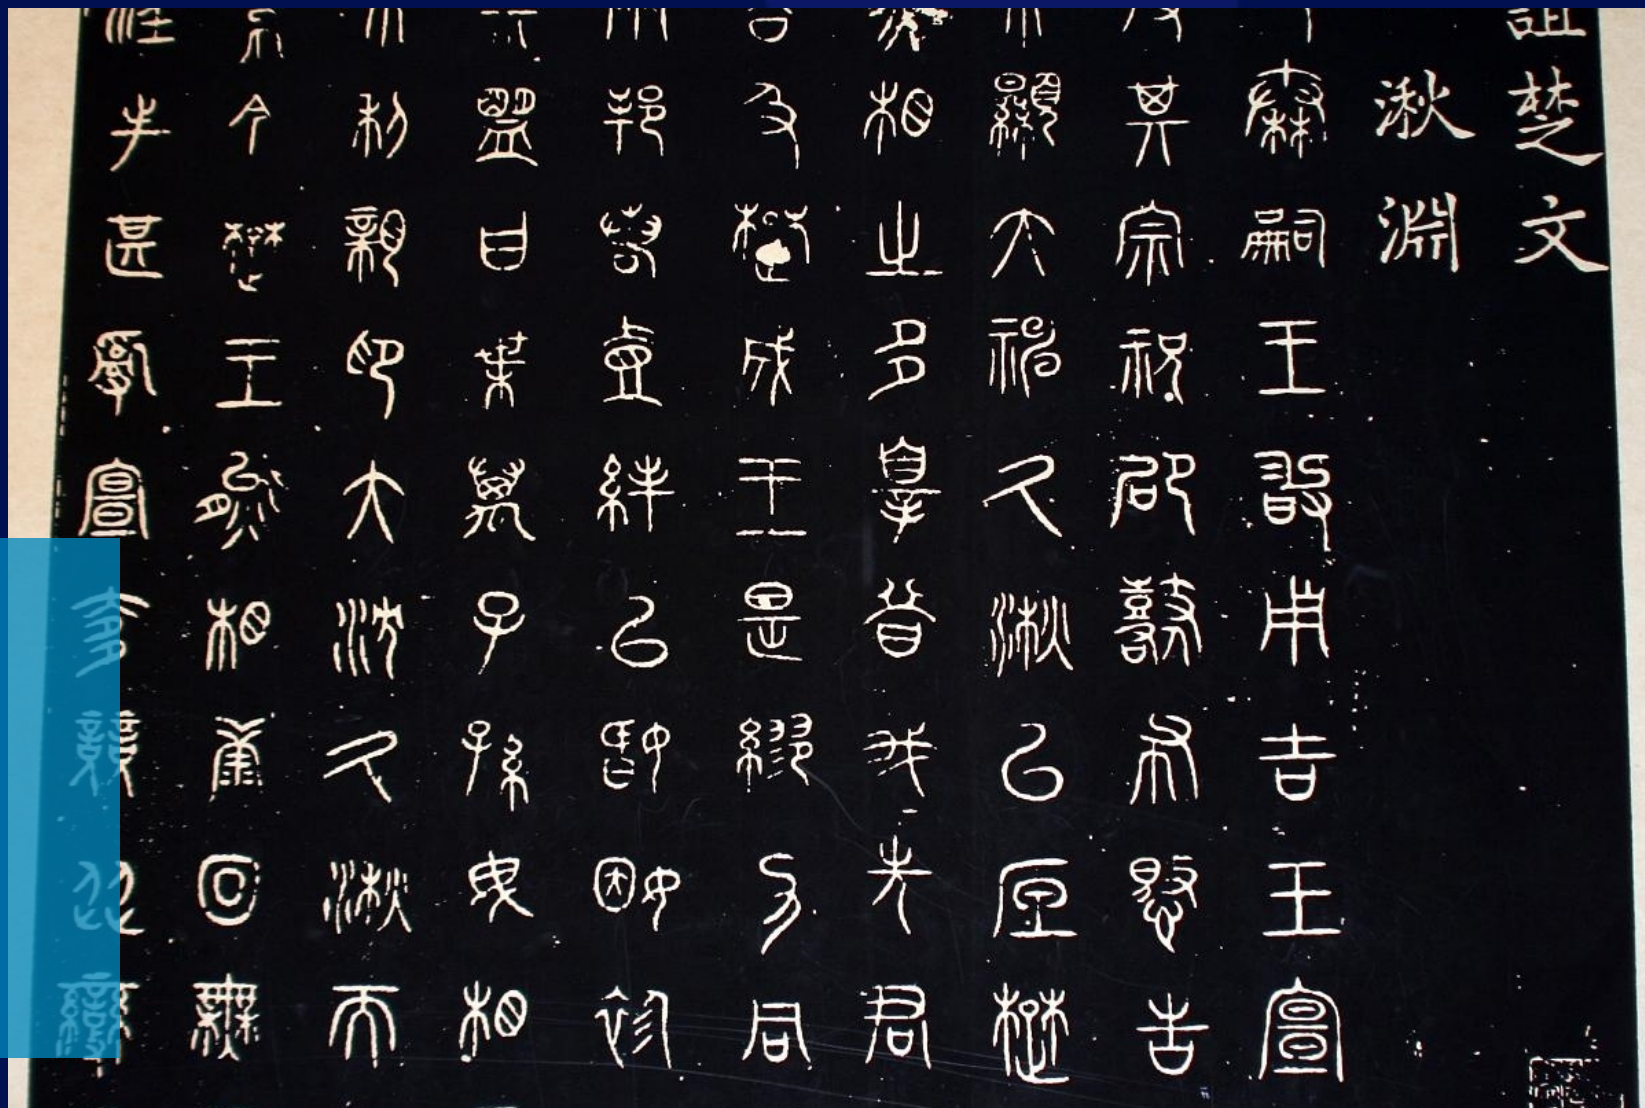 詛楚文
湫淵
秦嗣王敢用吉玉宣
其宗祝卲鼛布憝告
不顯大神久湫以厎楚
相之多辠昔我先君
及楚成王是繆力同
邦若壹絆以婚姻袗
盟曰枼萬子孫毋相
不利親卬大沈久湫而
今楚王熊相康回無
淫失甚亂宣奓競從變